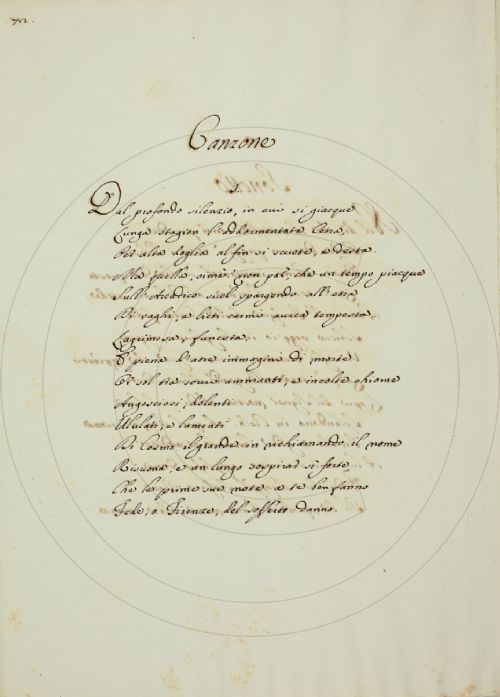 72.
Canzone
1
Dal profondo silenzio, in cui si giacque
Lunga stagion l'addormentata Cetra
Per alta doglia al fin si scuote, e desta.
Ma quella, oimè! non par, che un tempo piacque
Sull' Arcadico suol spargendo all' etra
Di vaghi, e lieti versi aurea tempesta.
Lagrimosa, funesta,
E piena d'atre immagini di morte
E sol tra scuri ammanti, e incolte chiome
Angosciosi, dolenti
Ululati, e lamenti
Di Cosmo il grande in richiamando il nome
Risuona, e un lungo sospirar sì forte,
Che le prime sue note a te ben fanno
Fede, o Firenze, del sofferto danno.